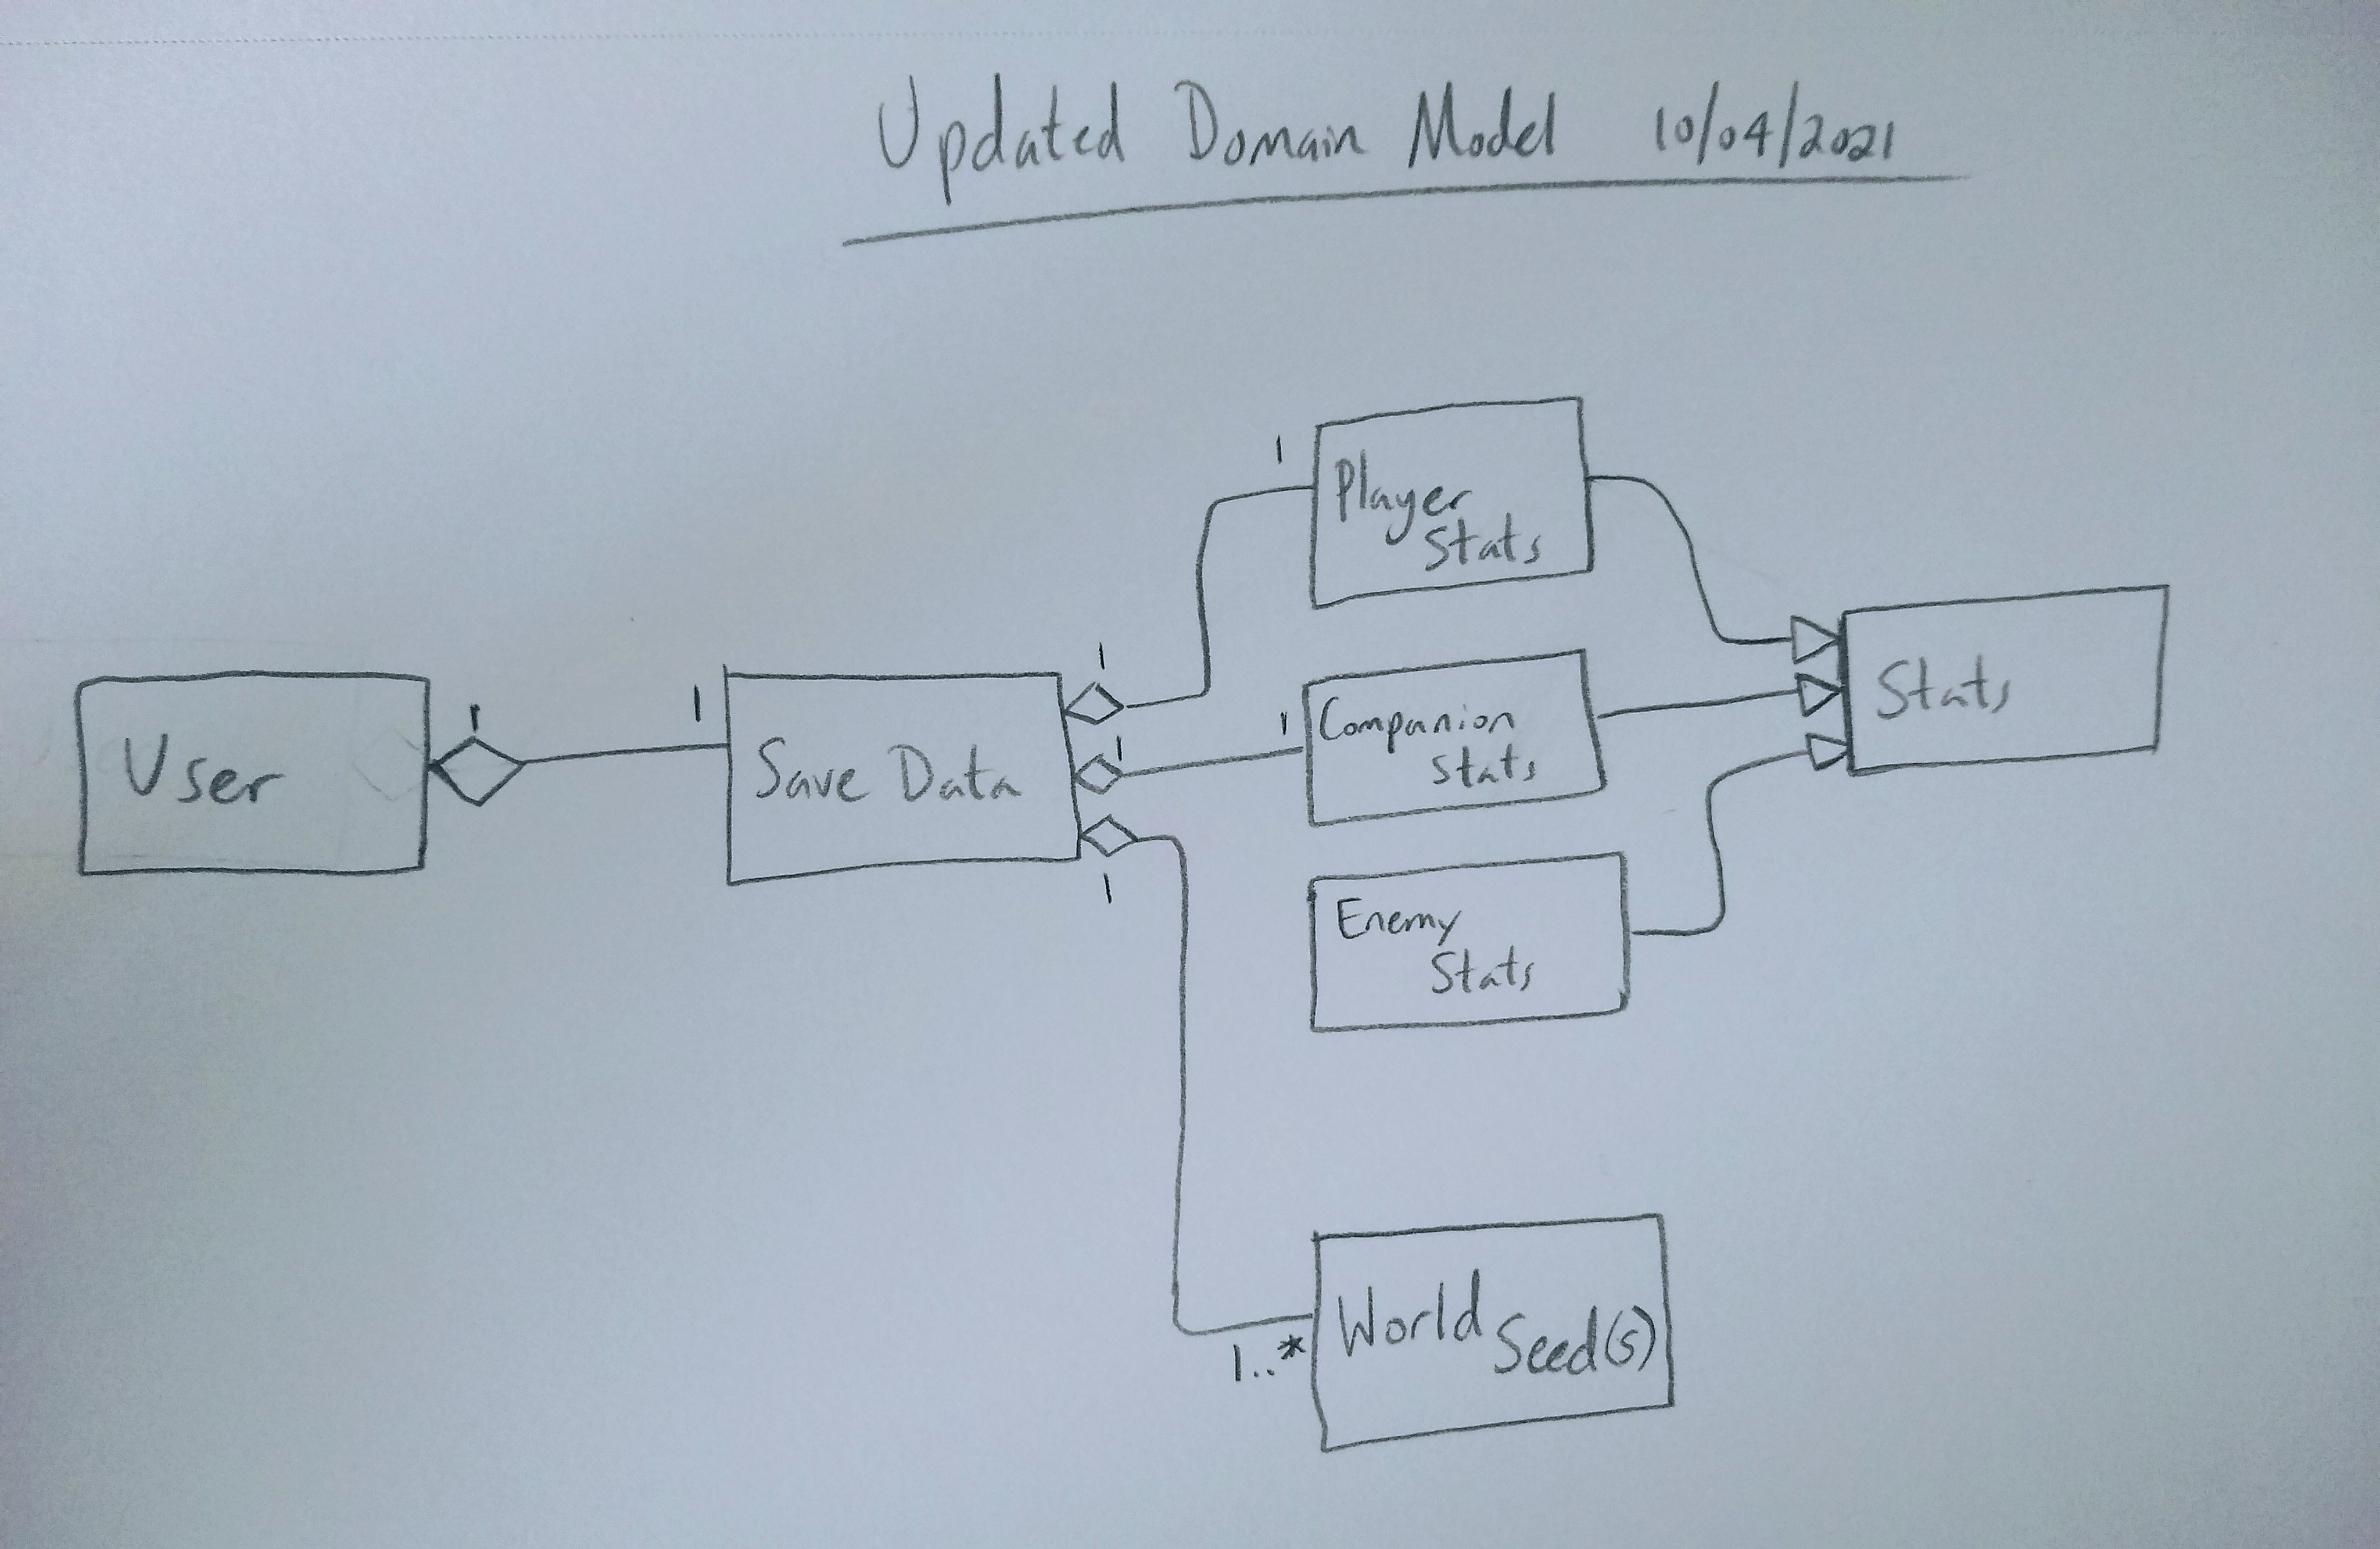 Updated Domain Model 10/04/2021
User
1
1
Save Data
1
1
1
1
Player
Stats
1
Companion
Stats
Enemy
Stats
Stats
1..*
World Seed(s)